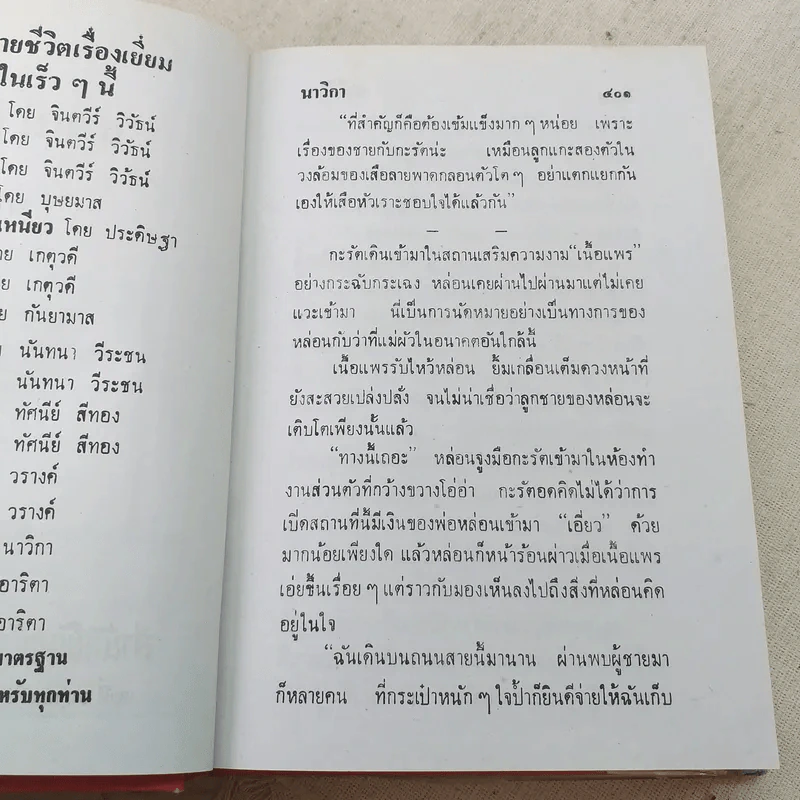 ายชีวิตเรื่องเยี่ยม
ในเร็ว ๆ นี้
โดย จินตวีร์ วิวัธน์
โดย จินตวีร์ วิวัธน์
โดย จินตวีร์ วิวัธน์
โดย บุษยมาส
นหนียว โดย ประดิษฐา
เกตุวดี
เกตุวดี
กันยามาส
นันทนา วีระชน
นันทนา วีระชน
ทัศนีย์ สีทอง
ทัศนีย์ สีทอง
วรางค์
วรางค์
นาวิกา
อาริตา
อาริตา
มาตรฐาน
หรับทุกท่าน
นาวิกา ๔๐๑
“ที่สำคัญก็คือต้องเข้มแข็งมาก ๆ หน่อย เพราะ
เรื่องของชายกับกะรัตน่ะ เหมือนลูกแกะสองตัวใน
วงล้อมของเสือลายพาดกลอนตัวโต ๆ อย่าแตกแยกกัน
เองให้เสือหัวเราะชอบใจได้แล้วกัน”
— —
กะรัตเดินเข้ามาในสถานเสริมความงาม“เนื้อแพร”
อย่างกระฉับกระเฉง หล่อนเคยผ่านไปผ่านมาแต่ไม่เคย
แวะเข้ามา นี่เป็นการนัดหมายอย่างเป็นทางการของ
หล่อนกับว่าที่แม่ผัวในอนาคตอันใกล้นี้
เนื้อแพรรับไหว้หล่อน ยิ้มเกลื่อนเต็มดวงหน้าที่
ยังสะสวยเปล่งปลั่ง จนไม่น่าเชื่อว่าลูกชายของหล่อนจะ
เติบโตเพียงนั้นแล้ว
“ทางนี้เถอะ” หล่อนจูงมือกะรัตเข้ามาในห้องทำ
งานส่วนตัวที่กว้างขวางโอ่อ่า กะรัตอดคิดไม่ได้ว่าการ
เปิดสถานที่นี้มีเงินของพ่อหล่อนเข้ามา “เอี่ยว” ด้วย
มากน้อยเพียงใด แล้วหล่อนก็หน้าร้อนผ่าวเมื่อเนื้อแพร
เอ่ยขึ้นเรื่อย ๆ แต่ราวกับมองเห็นลงไปถึงสิ่งที่หล่อนคิด
อยู่ในใจ
“ฉันเดินบนถนนสายนี้มานาน ผ่านพบผู้ชายมา
ก็หลายคน ที่กระเป๋าหนัก ๆ ใจป้ำก็ยินดีจ่ายให้ฉันเก็บ